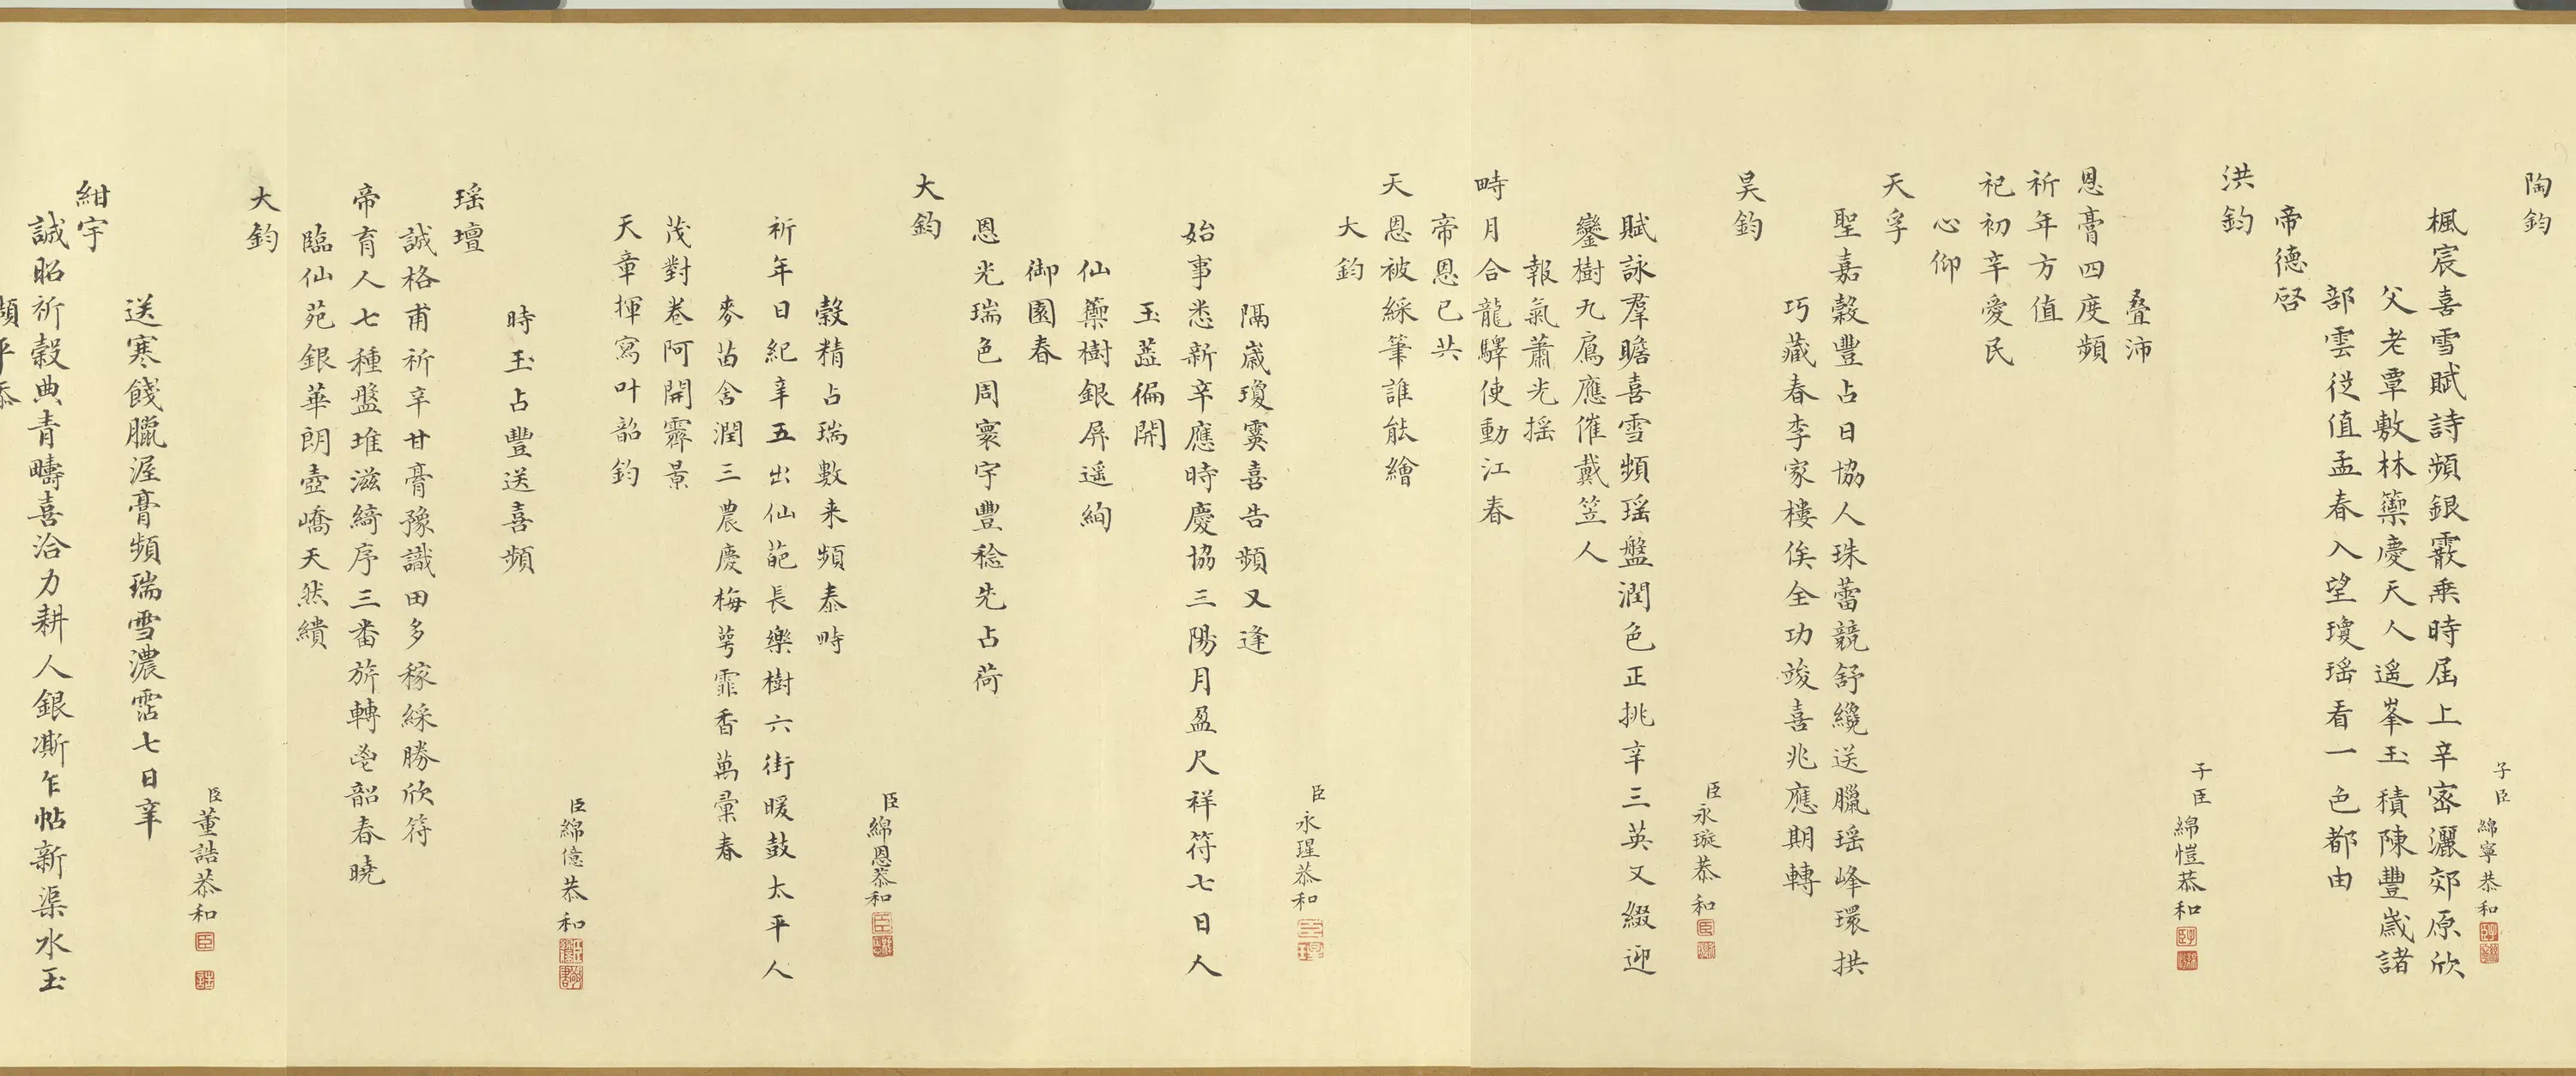 陶鈞
子臣綿寧恭和
楓宸喜雪賦詩頻銀霰乘時屆上辛密灑郊原欣
父老覃敷林籞慶天人遥峯玉積陳豐歲諸
部雲從值孟春入望瓊瑶看一色都由
帝德啓
洪鈞
子臣綿愷恭和
叠沛
恩膏四度頻
祈年方值
祀初辛愛民
心仰
天孚
聖嘉穀豐占日協人珠蕾競舒纔送臘瑶峰環拱
巧藏春李家樓俟全功竣喜兆應期轉
昊鈞
臣永璇恭和
賦詠羣瞻喜雪頻瑶盤潤色正挑辛三英又綴迎
鑾樹九扈應催戴笠人
報氣蕭光摇
畤月合龍驛使動江春
帝恩已共
天恩被綵筆誰能繪
大鈞
臣永瑆恭和
隔歲瓊霙喜告頻又逢
始事悉新辛應時慶協三陽月盈尺祥符七日人
玉蕋徧開
仙籞樹銀屏遥絢
御園春
恩光瑞色周寰宇豐稔先占荷
大鈞
臣綿恩恭和
穀精占瑞數来頻泰畤
祈年日紀辛五出仙葩長樂樹六街暖鼓太平人
麥苗含潤三農慶梅萼霏香萬彚春
茂對卷阿開霽景
天章揮寫叶韶鈞
臣綿億恭和
時玉占豐送喜頻
瑶壇
誠格甫祈辛甘膏豫識田多稼綵勝欣符
帝育人七種盤堆滋綺序三番旂轉鬯韶春曉
臨仙苑銀華朗壺嶠天然繢
大鈞
臣董誥恭和
送寒餞臘渥膏頻瑞雪濃霑七日辛
紺宇
誠昭祈穀典青疇喜洽力耕人銀凘乍帖新渠水玉